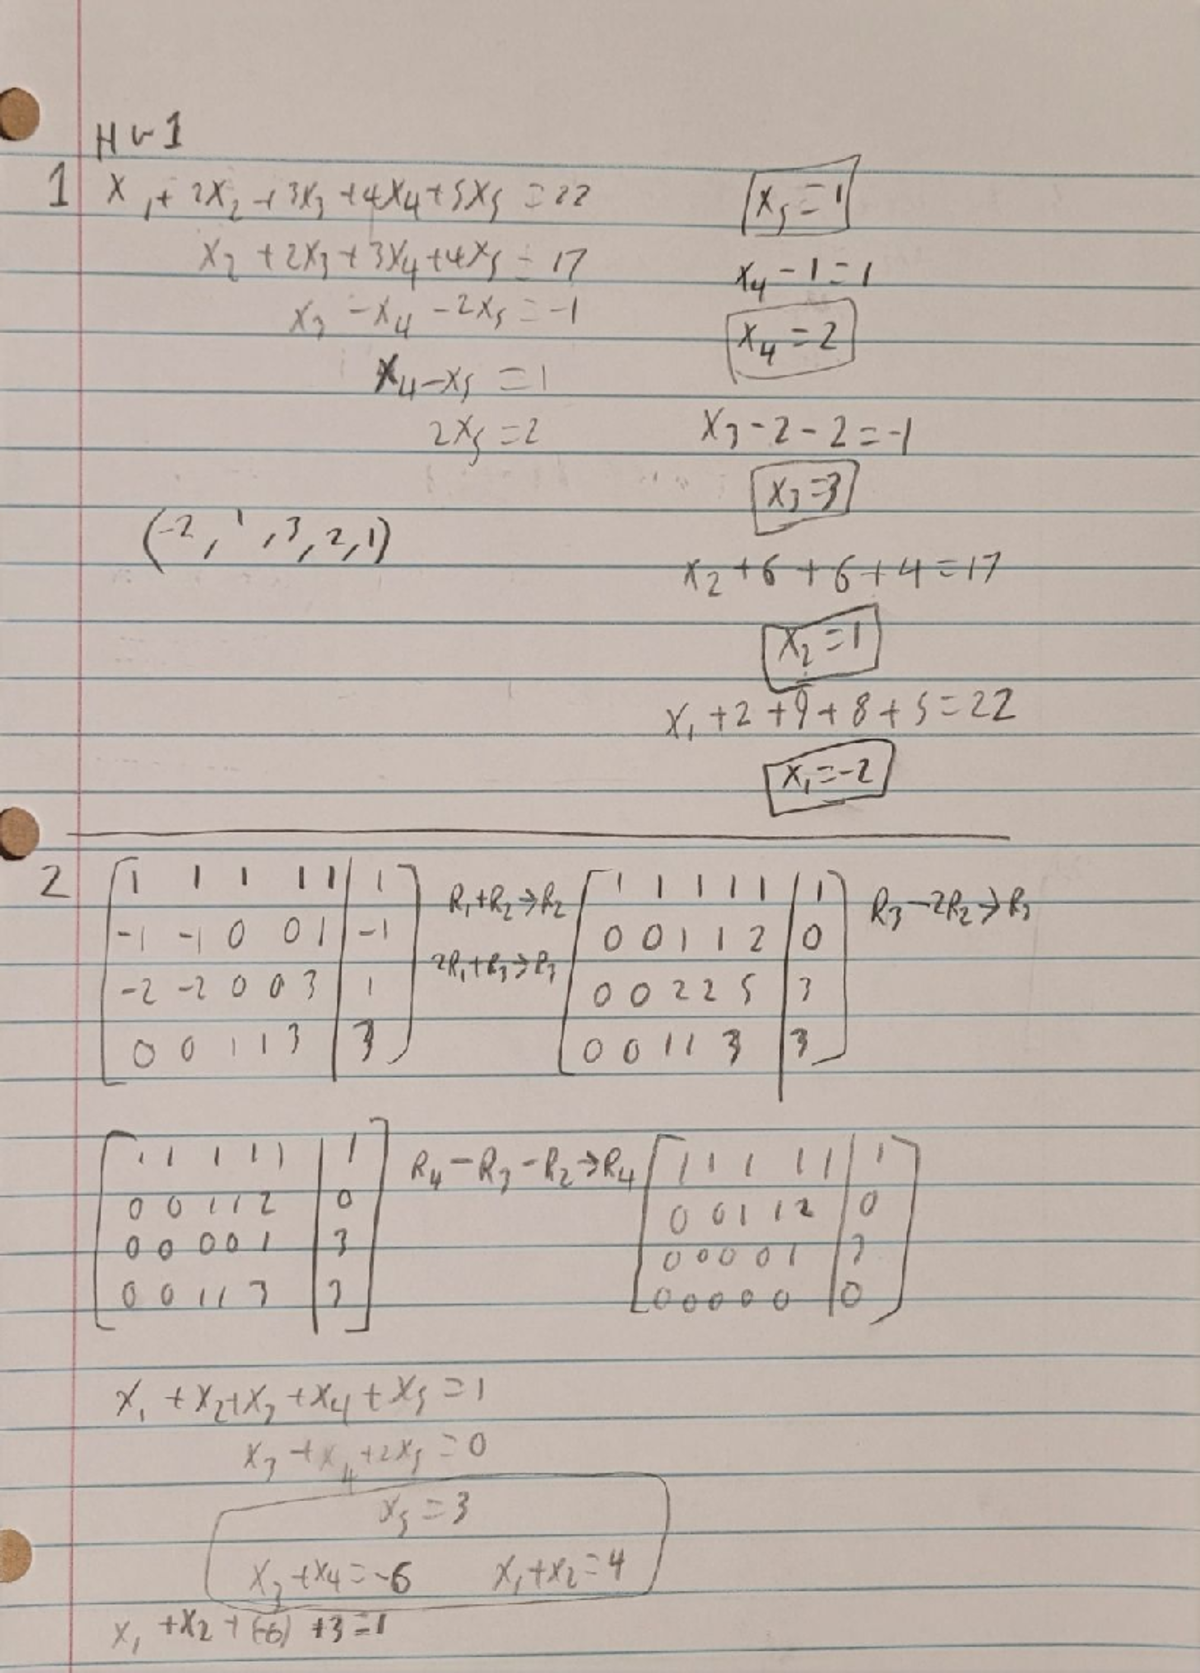 HW1
1 x₁ + 2x₂ + 3x₃ + 4x₄ + 5x₅ = 22
x₂ + 2x₃ + 3x₄ + 4x₅ = 17
x₃ - x₄ - 2x₅ = -1
x₄ - x₅ = 1
2x₅ = 2
(-2, 1, 3, 2, 1)
x₅ = 1
x₄ - 1 = 1
x₄ = 2
x₃ - 2 - 2 = -1
x₃ = 3
x₂ + 6 + 6 + 4 = 17
x₂ = 1
x₁ + 2 + 9 + 8 + 5 = 22
x₁ = -2
2
1 1 1 1 1 | 1
-1 -1 0 0 1 | -1
-2 -2 0 0 3 | 1
0 0 1 1 3 | 3
R₁ + R₂ → R₂
2R₁ + R₃ → R₃
1 1 1 1 1 | 1
0 0 1 1 2 | 0
0 0 2 2 5 | 3
0 0 1 1 3 | 3
R₃ - 2R₂ → R₃
1 1 1 1 1 | 1
0 0 1 1 2 | 0
0 0 0 0 1 | 3
0 0 1 1 3 | 3
R₄ - R₃ - R₂ → R₄
1 1 1 1 1 | 1
0 0 1 1 2 | 0
0 0 0 0 1 | 3
0 0 0 0 0 | 0
x₁ + x₂ + x₃ + x₄ + x₅ = 1
x₃ + x₄ + 2x₅ = 0
x₅ = 3
x₃ + x₄ = -6 x₁ + x₂ = 4
x₁ + x₂ + (-6) + 3 = 1